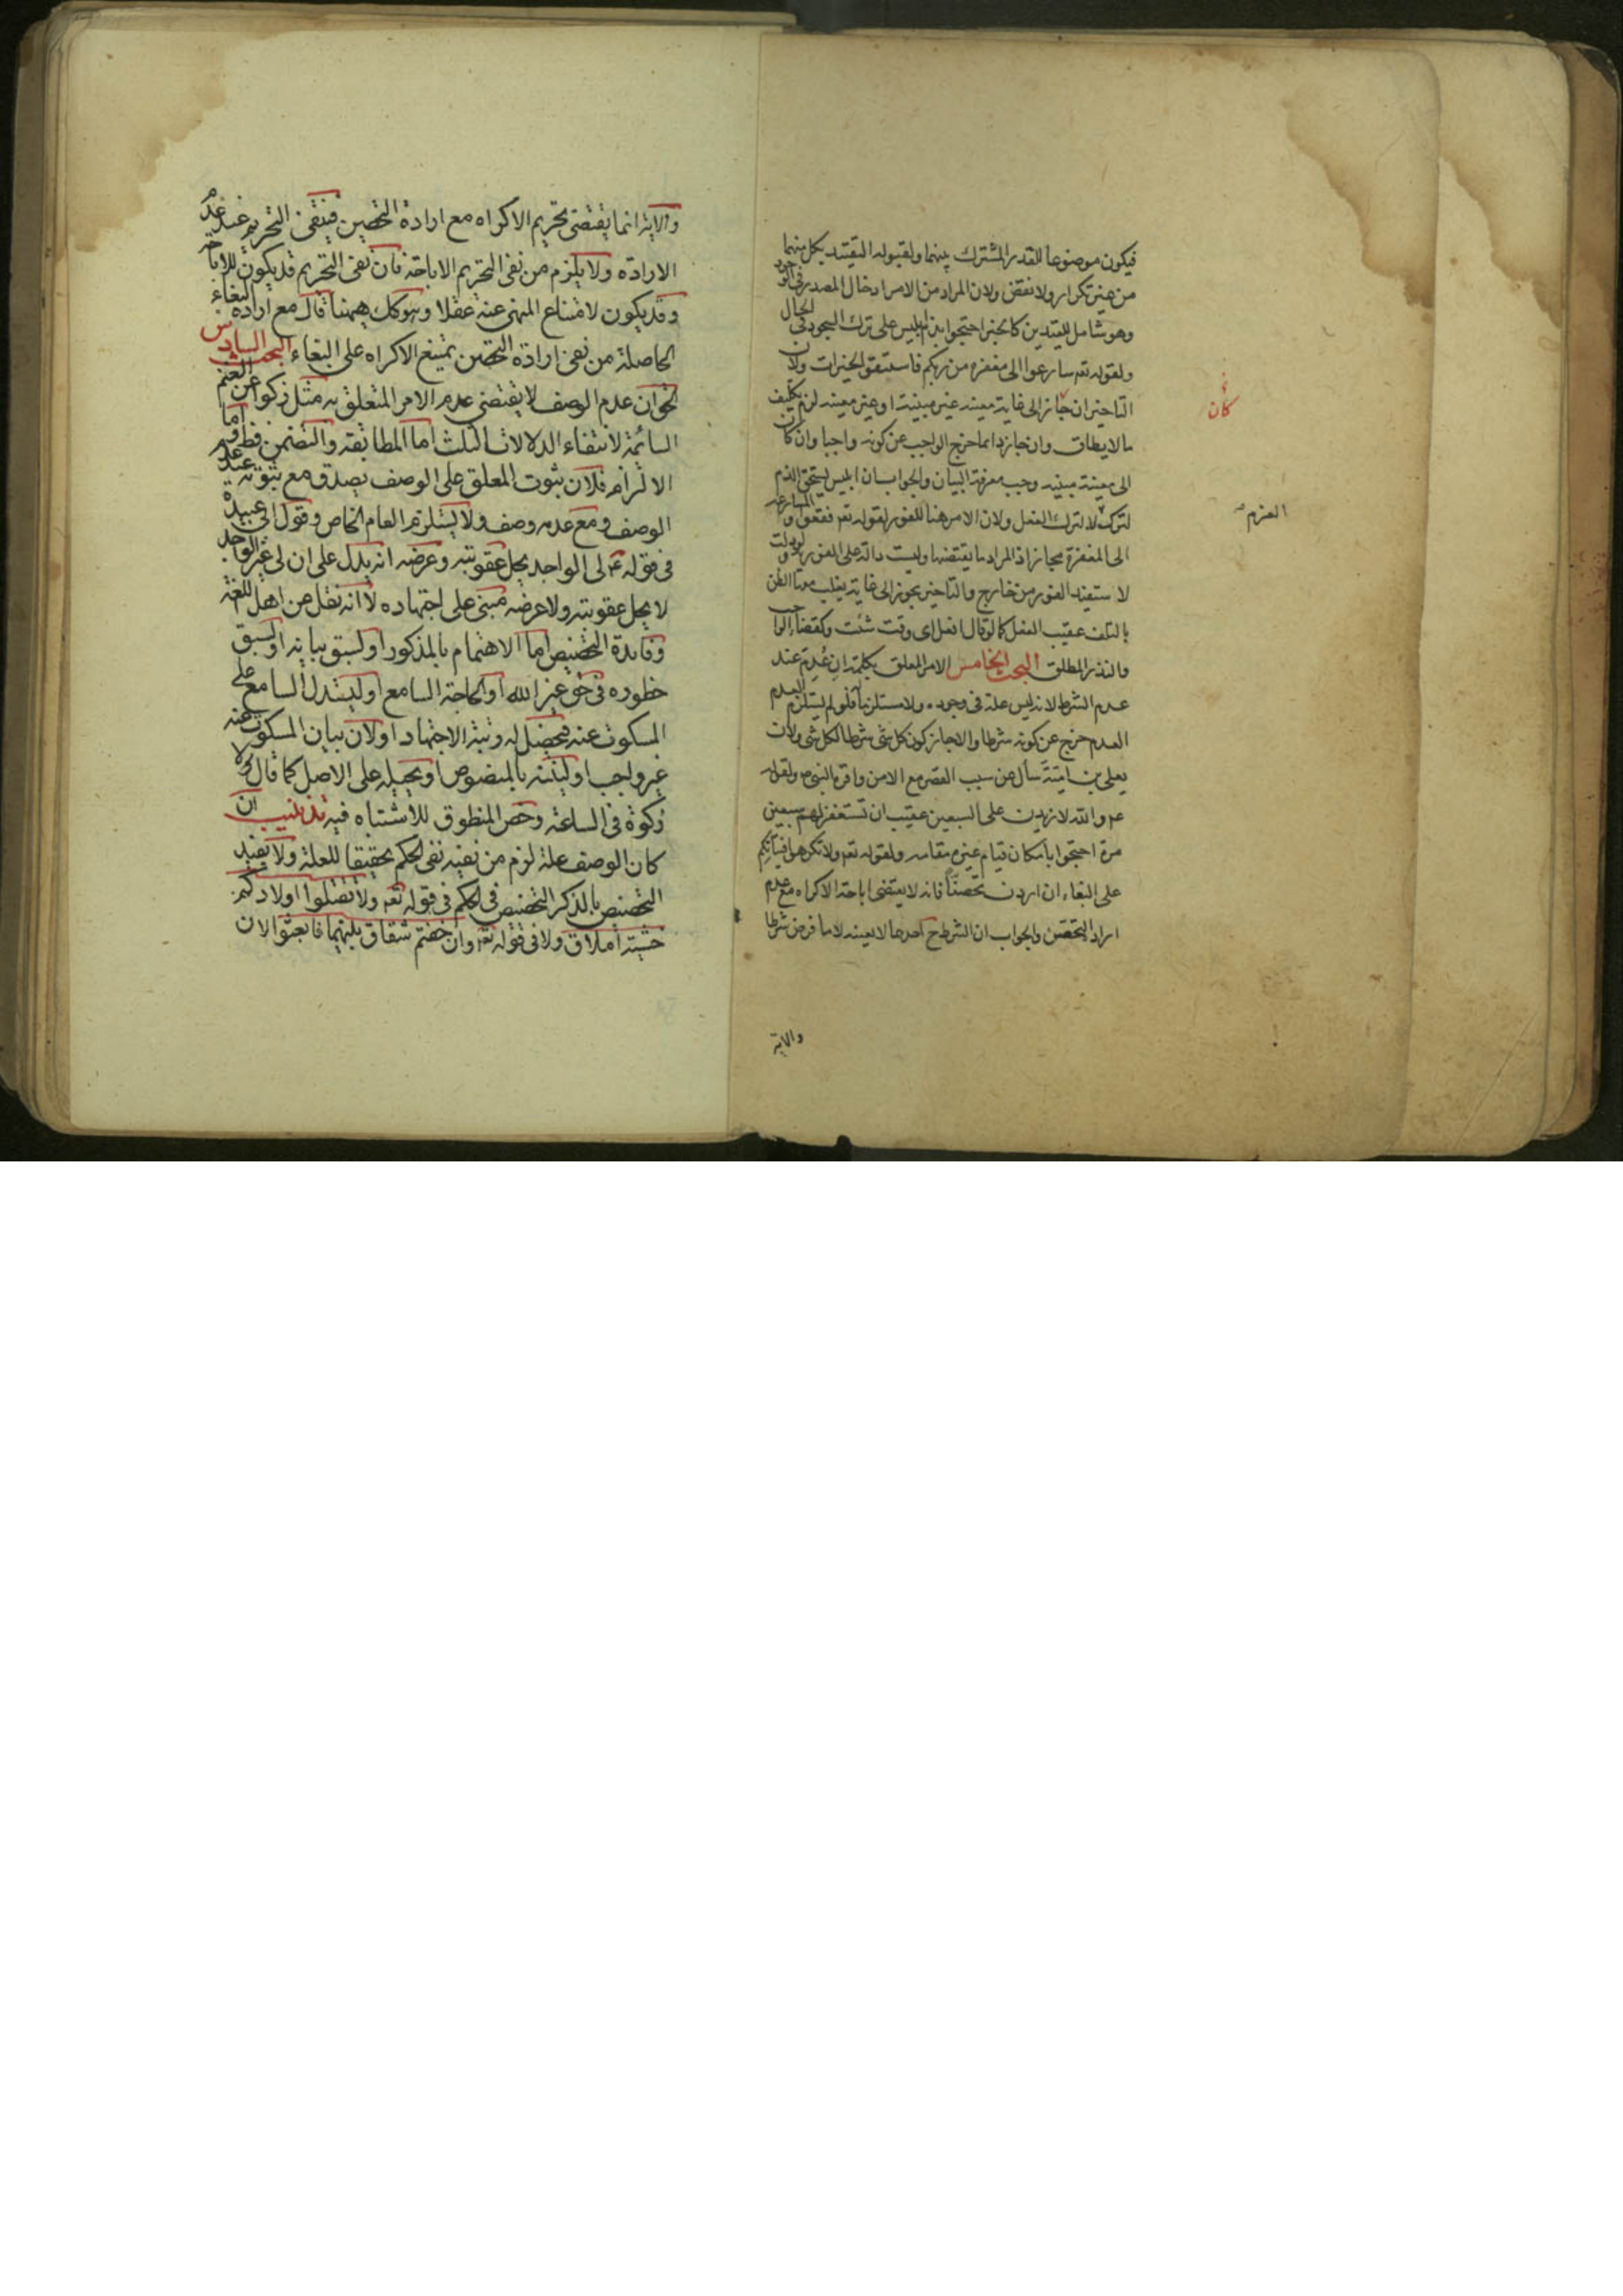 فيكون موضوعا للقدر المشترك بينهما ولقبوله التقييد بكل منهما
من غير تكرار ولا نقض ولان المراد من الامر ادخال المصدر في الوجود
وهو شامل للقيدين كالخبر احتجوا بذم ابليس على ترك السجود في الحال
ولقوله تعه سارعوا الى مغفرة من ربكم فاستبقوا الخيرات ولان
التاخير ان جاز الى غاية معينه غير مبينة او غير معينه لزم تكليف
ما لا يطاق وان جاز دائما خرج الواجب عن كونه واجبا وان كان
الى معينة مبينه وجب معرفة البيان والجواب ان ابليس يستحق الذم
لتركه لا لترك الفعل ولان الامر هنا للفور لقوله تعه فقعوا والمسارعه
الى المغفرة مجاز اذ المراد ما يقتضيها وليست دالة على الفور ولو دلت
لاستفيد الفور من خارج والتاخير يجوز الى غاية يغلب معها الظن
بالتلف عقيب الفعل كما لو قال افعل اى وقت شئت وكقضاء الواجب
والنذر المطلق البحث الخامس الامر المعلق بكلمة ان عدم عند
عدم الشرط لانه ليس علة في وجوده ولا مستلزما فلو لم يستلزم العدم
العدم خرج عن كونه شرطا والا جاز كون كل شئ شرطا لكل شئ ولان
يعلى بن امية سأل عن سبب القصر مع الامن واقره النبي ص ولقوله
ع والله لازيدن على السبعين عقيب ان تستغفر لهم سبعين
مرة احتجوا بامكان قيام غيره مقامه ولقوله تعه ولا تكرهوا فتياتكم
على البغاء ان اردن تحصنا فانه لا يقتضى اباحة الاكراه مع عدم
ارادة التحصن والجواب ان الشرط ح احدهما لا بعينه لا ما فرض شرطا
والاية
كان
العزم
والاية انما يقتضى تحريم الاكراه مع ارادة التحصين فينتفى التحريم عند عدم
الارادة ولا يلزم من نفى التحريم الاباحة فان نفى التحريم قد يكون للاباحة
وقد يكون لامتناع المنهى عنه عقلا وهو كك ههنا فان مع ارادة البغاء
الحاصلة من نفى ارادة التحصن يمتنع الاكراه على البغاء البحث السادس
الحق ان عدم الوصف لا يقتضى عدم الامر المتعلق به مثل زكوا عن الغنم
السائمة لانتفاء الدلالات الثلث اما المطابقة والتضمن فظ واما
الالتزام فلان ثبوت المعلق على الوصف يصدق مع ثبوته عند
الوصف ومع عدمه وصف ولا يستلزم العام الخاص وقول ابى عبيدة
في قوله ع لى الواجد يحل عقوبته وعرضه انه يدل على ان لى غير الواجد
لا يحل عقوبته ولا عرضه مبنى على اجتهاده لا انه نقل عن اهل اللغة
وفائدة التخصيص اما الاهتمام بالمذكور او لسبق بيانه او لسبق
خطوره في حق غير الله او لحاجة السامع او ليستدل السامع على
المسكوت عنه فيحصل له رتبة الاجتهاد او لان بيان المسكوت عنه
غير واجب او ليبينه بالمنصوص او يحيله على الاصل كما قال لا
زكوة في السائمة وخص المنطوق للاشتباه فيه تذنيب ان
كان الوصف علة لزم من نفيه نفى الحكم تحقيقا للعلة ولا يفيد
التخصيص بالذكر التخصيص في الحكم في قوله تعه ولا تقتلوا اولادكم
خشية املاق ولا في قوله تعه وان خفتم شقاق بينهما فابعثوا لان